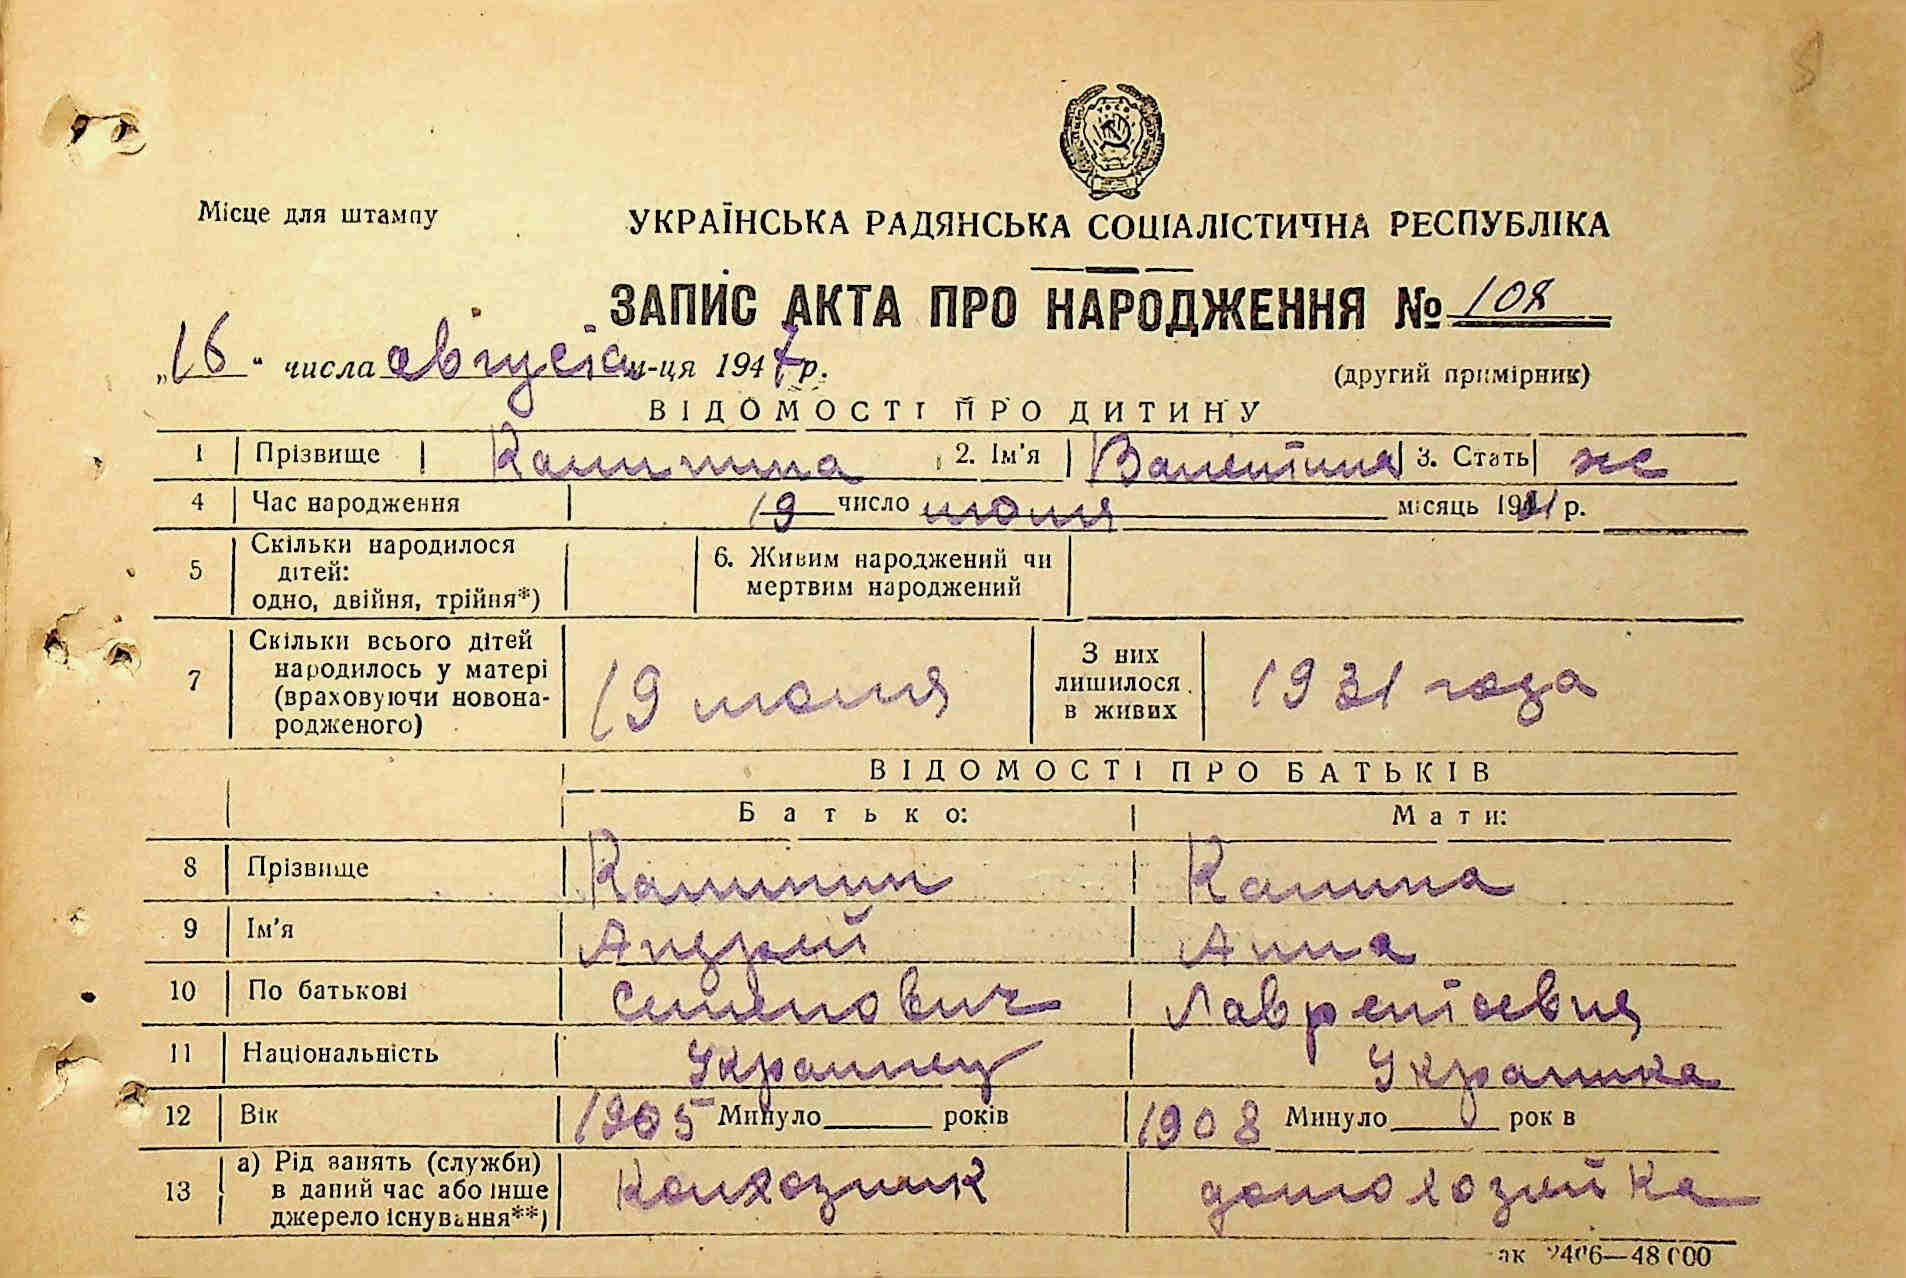 Місце для штампу
УКРАЇНСЬКА РАДЯНСЬКА СОЦІАЛІСТИЧНА РЕСПУБЛІКА
ЗАПИС АКТА ПРО НАРОДЖЕННЯ № 108
„16" числа августа м-ця 1947 р.
(другий примірник)
ВІДОМОСТІ ПРО ДИТИНУ
1 Прізвище Калинина 2. Ім'я Валентина 3. Стать ж
4 Час народження 19 число июля місяць 1931 р.
5 Скільки народилося дітей: одно, двійня, трійня*) 6. Живим народжений чи мертвим народжений
7 Скільки всього дітей народилось у матері (враховуючи новонародженого) 19 июля З них лишилося в живих 1931 года
ВІДОМОСТІ ПРО БАТЬКІВ
Батько: Мати:
8 Прізвище Калинин Калина
9 Ім'я Андрей Анна
10 По батькові Семенович Лаврентьевна
11 Національність Украинец Украинка
12 Вік 1905 Минуло років 1908 Минуло рок в
13 а) Рід занять (служби) в даний час або інше джерело існування**) Колхозник домохозяйка